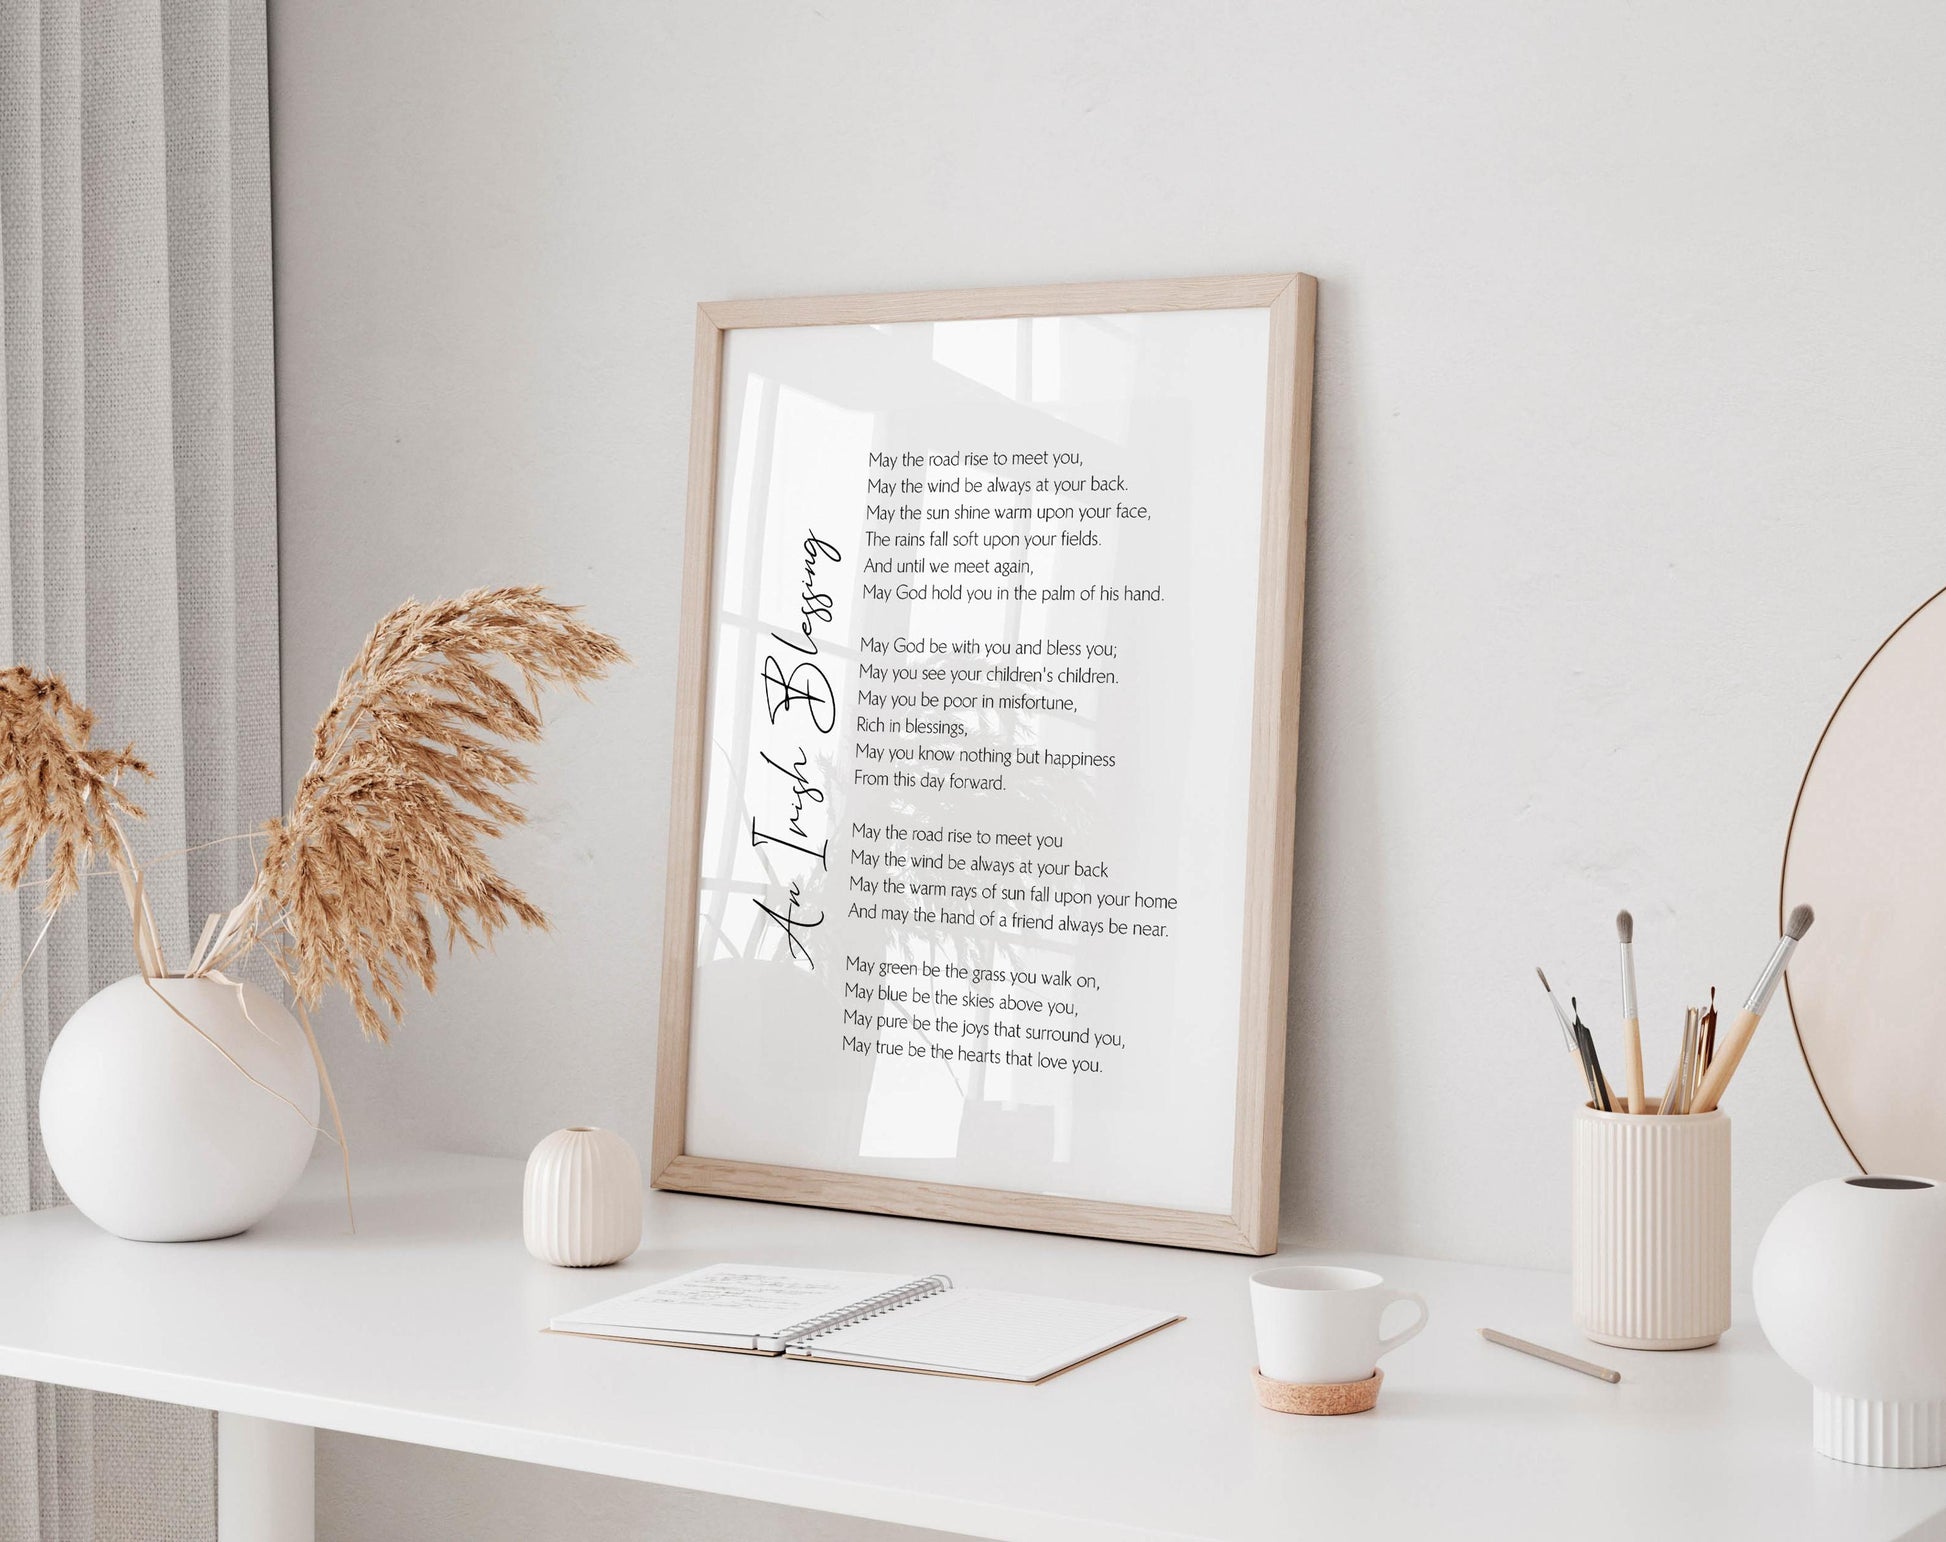 An Irish Blessing
May the road rise to meet you,
May the wind be always at your back.
May the sun shine warm upon your face,
The rains fall soft upon your fields.
And until we meet again,
May God hold you in the palm of his hand.
May God be with you and bless you;
May you see your children's children.
May you be poor in misfortune,
Rich in blessings,
May you know nothing but happiness
From this day forward.
May the road rise to meet you
May the wind be always at your back
May the warm rays of sun fall upon your home
And may the hand of a friend always be near.
May green be the grass you walk on,
May blue be the skies above you,
May pure be the joys that surround you,
May true be the hearts that love you.